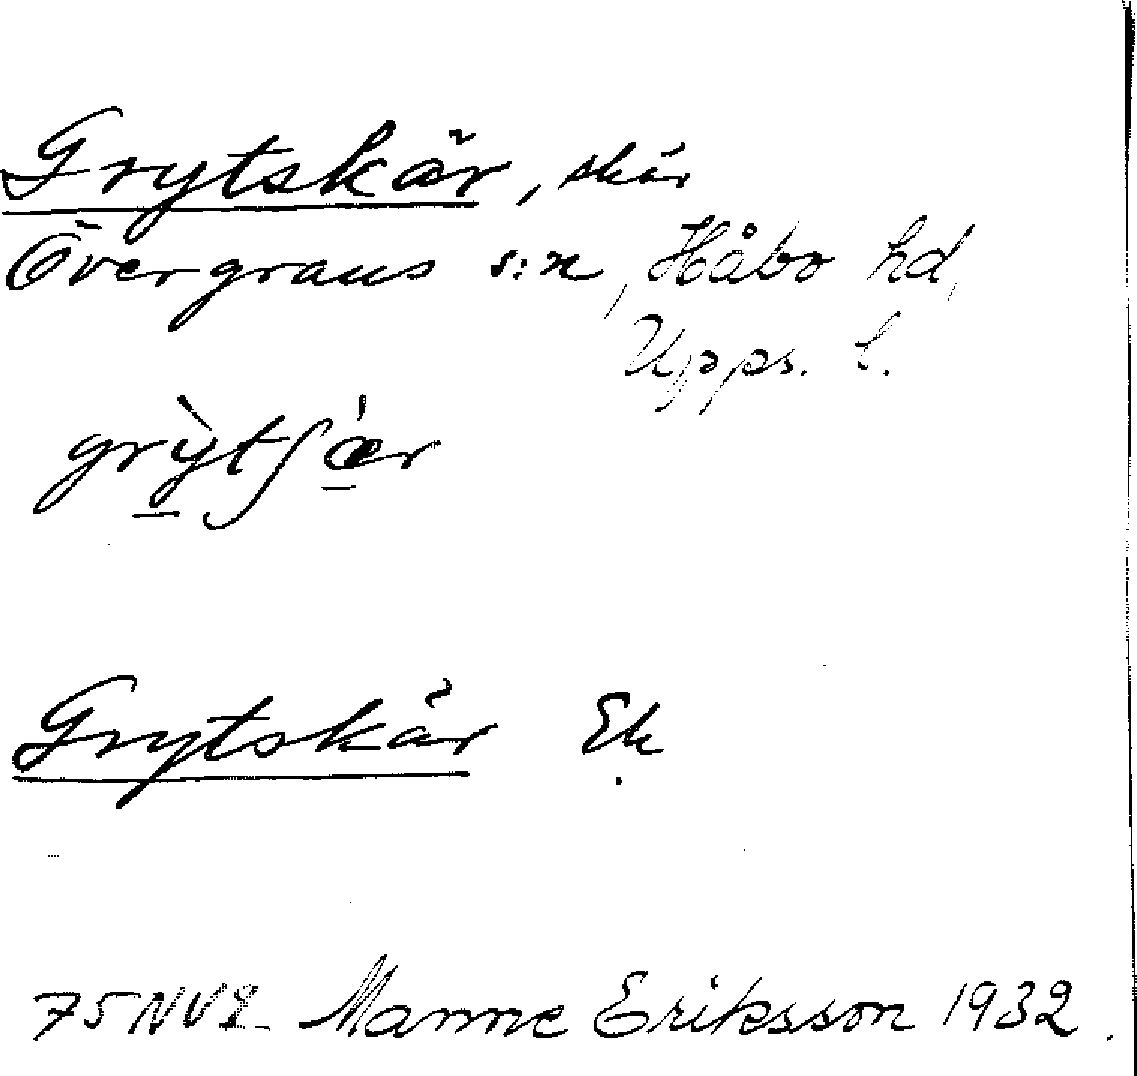 Grytskär, skär
Övergrans s:n, Håbo hd,
Upps. l.
grỳtʃǽr
Grytskär Ek
75NV2 Manne Eriksson 1932.